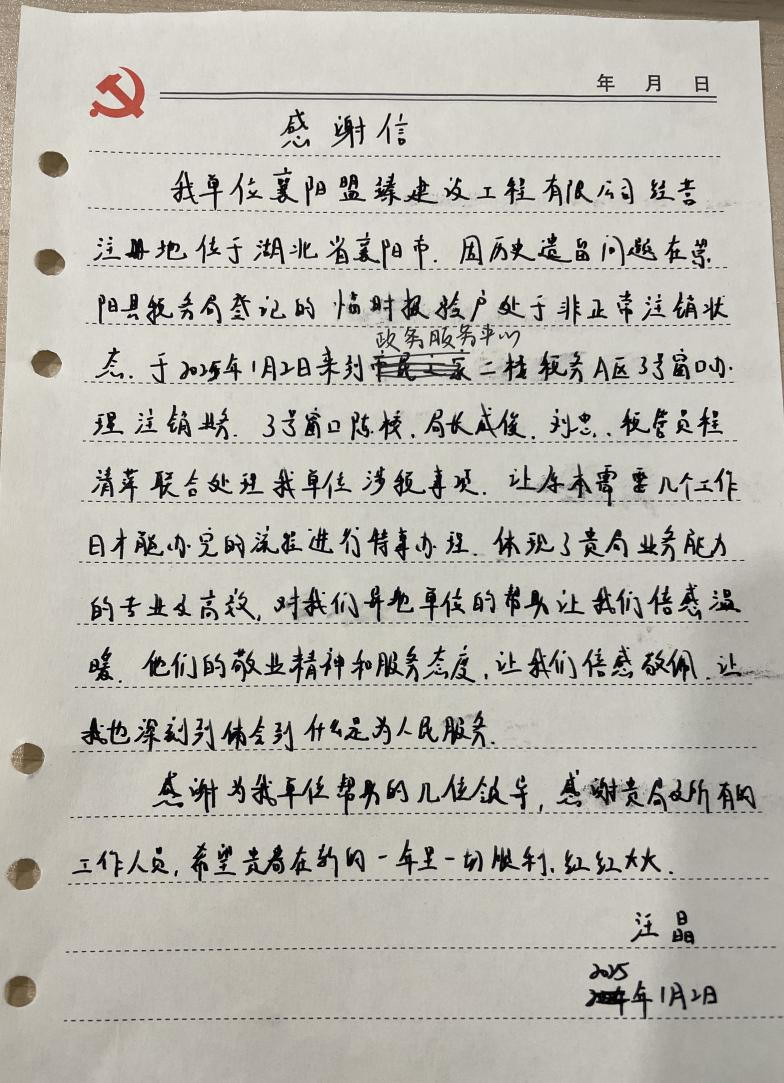 年 月 日
感谢信
我单位襄阳盟臻建设工程有限公司经营
注册地位于湖北省襄阳市. 因历史遗留问题在崇
阳县税务局登记的临时报验户处于非正常注销状
政务服务中心
态. 于2025年1月2日来到二楼税务A区3号窗口办
理注销业务. 3号窗口陈核、局长咸俊、刘忠、税管员程
清萍联合处理我单位涉税事项. 让原本需要几个工作
日才能办完的流程进行特事办理. 体现了贵局业务能力
的专业及高效, 对我们异地单位的帮助让我们倍感温
暖. 他们的敬业精神和服务态度, 让我们倍感敬佩. 让
我也深刻到体会到什么是为人民服务.
感谢为我单位帮助的几位领导, 感谢贵局及所有的
工作人员, 希望贵局在新的一年里一切胜利. 红红火火.
汪晶
2025
年1月2日